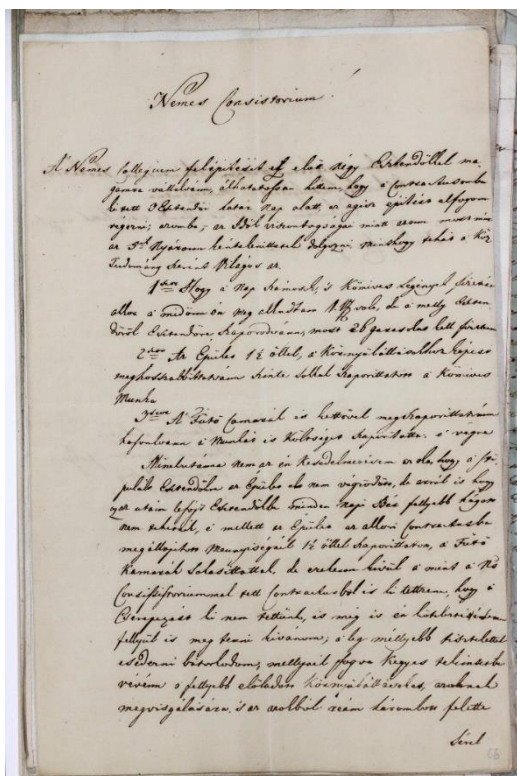 Nemes Consistorium.
A Nemes Collegium felépitését előz négy Esztendőkkel ma-
gamra vállalván, álhatatosan hittem, hogy a Contractusomba
ki tett Esztendő határ nap alatt, az egész építést elfogom
végezni; azomba, az Idők viszontagságai miatt
az 5k Nyáron kéntelenittetem dolgozni minthogy tehát a Köz
Tudomány szerént Világos az.
1ször Hogy a Nap Számosok, és Kőmives Legények fizetése
akkor a midőn én meg alkudtam volt, de a melly Eszten-
dőről Esztendőre szaporodván, most garasokra lett
2szor Az Épület 1½ öllel, a Környülállásokhoz képest
meghosszabbittatván szinte sokkal szaporittatott a Kőmives
Munka
3szor A Fűtő Camarák is kettővel megszaporittatván
hasonloan a Munkát is Költséget szaporitotta: a végre
Minekutánna nem az én késedelmezésem az oka, hogy a
Esztendőkre az Épület el nem végződött, de azért is hogy
az után lefojt Esztendőkbe minden napi Bér fellyebb hágott
nem tehetek, e mellett az Épület az akkori Contractusba
megállapitott Mennyiségnél 1½ öllel szaporittatott, a Fűtő
Kamarák sokasittattak, de ezeken kivül a mint a Ns
Consistoriummal tett Contractusbol is ki tettzik, hogy a
Cserepezést ki nem tettünk, és még is én kötelességemen
fellyül is meg tenni kivánom; a leg méllyebb tisztelettel
esedezni bátorkodom, mellyeknél fogva Kegyes tekintetbe
vévén a fellyebb előladott Környülállásokat, azoknak
megvisgálására, és az azokból reám háromlott felette
56